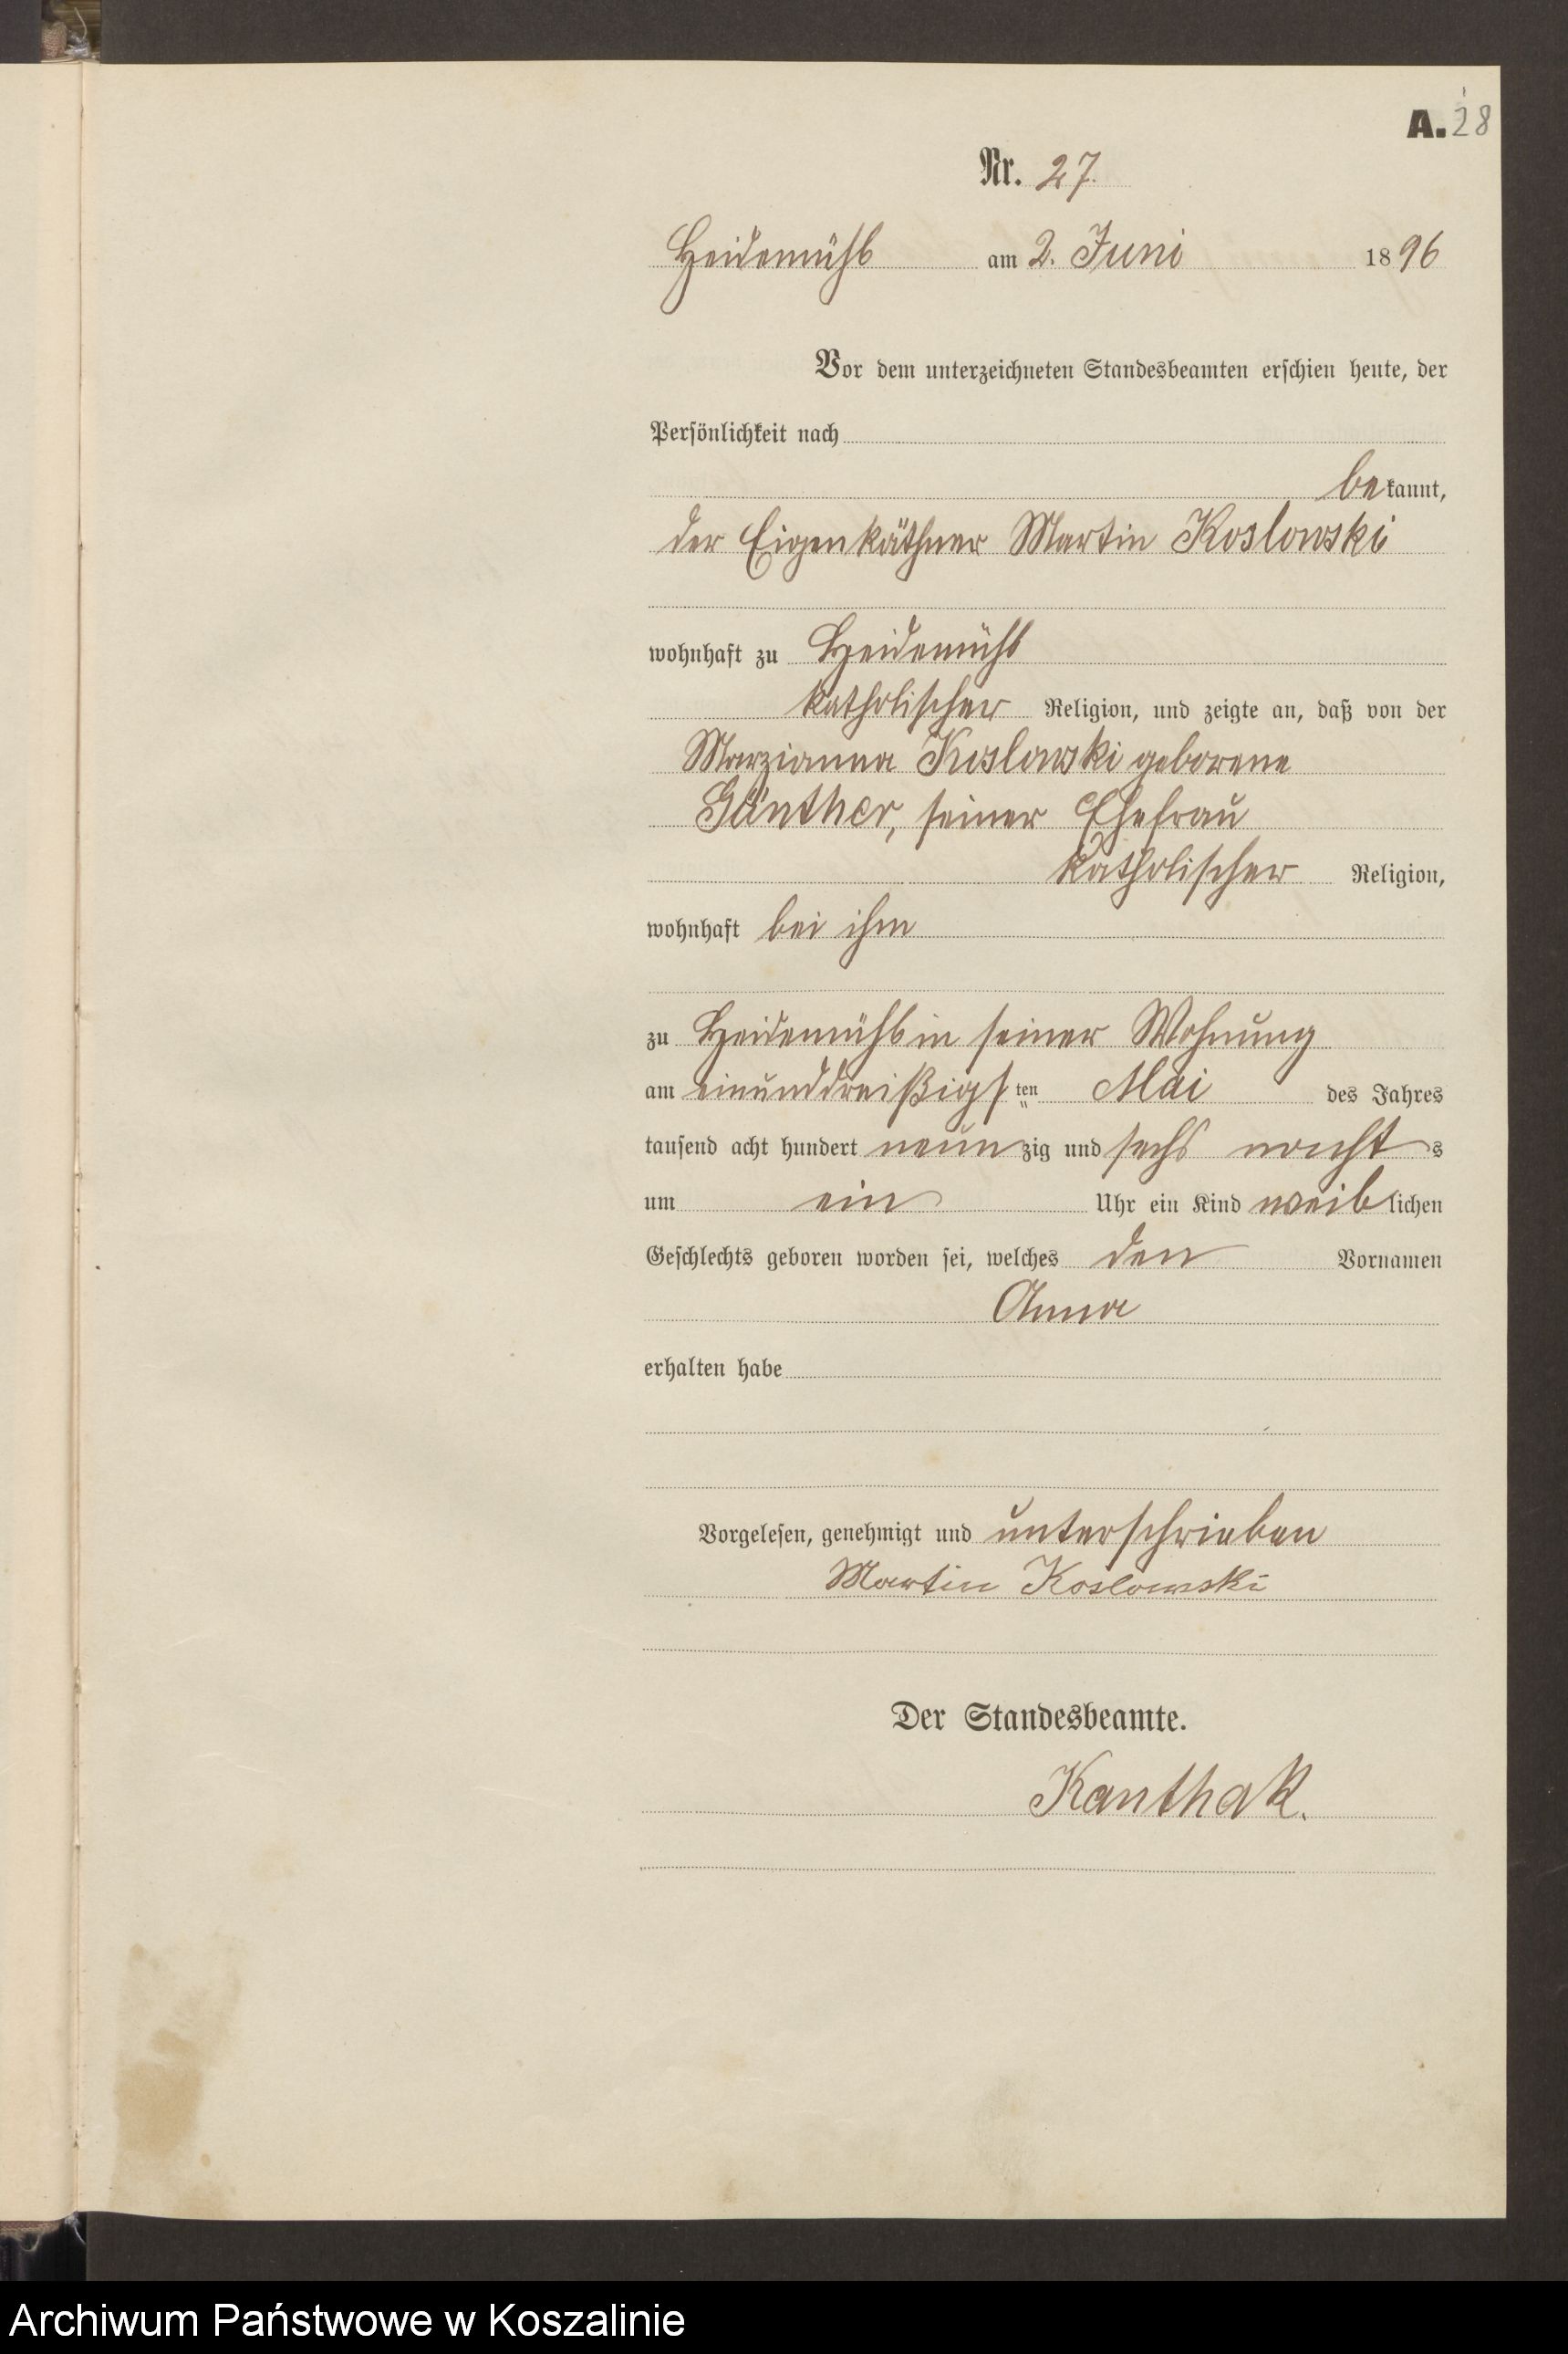 A. 28
Nr. 27.
Heidemühl am 2. Juni 1896
Vor dem unterzeichneten Standesbeamten erschien heute, der
Persönlichkeit nach
bekannt,
der Eigenkäthner Martin Koslowski
wohnhaft zu Heidemühl
katholischer Religion, und zeigte an, daß von der
Marzianna Koslowski geborene
Günther, seiner Ehefrau
katholischer Religion,
wohnhaft bei ihm
zu Heidemühl in seiner Wohnung
am einunddreißigsten Mai des Jahres
tausend acht hundert neunzig und sechs nachts
um ein Uhr ein Kind weiblichen
Geschlechts geboren worden sei, welches den Vornamen
Anna
erhalten habe
Vorgelesen, genehmigt und unterschrieben
Martin Koslowski
Der Standesbeamte.
Kanthak.
Archiwum Państwowe w Koszalinie